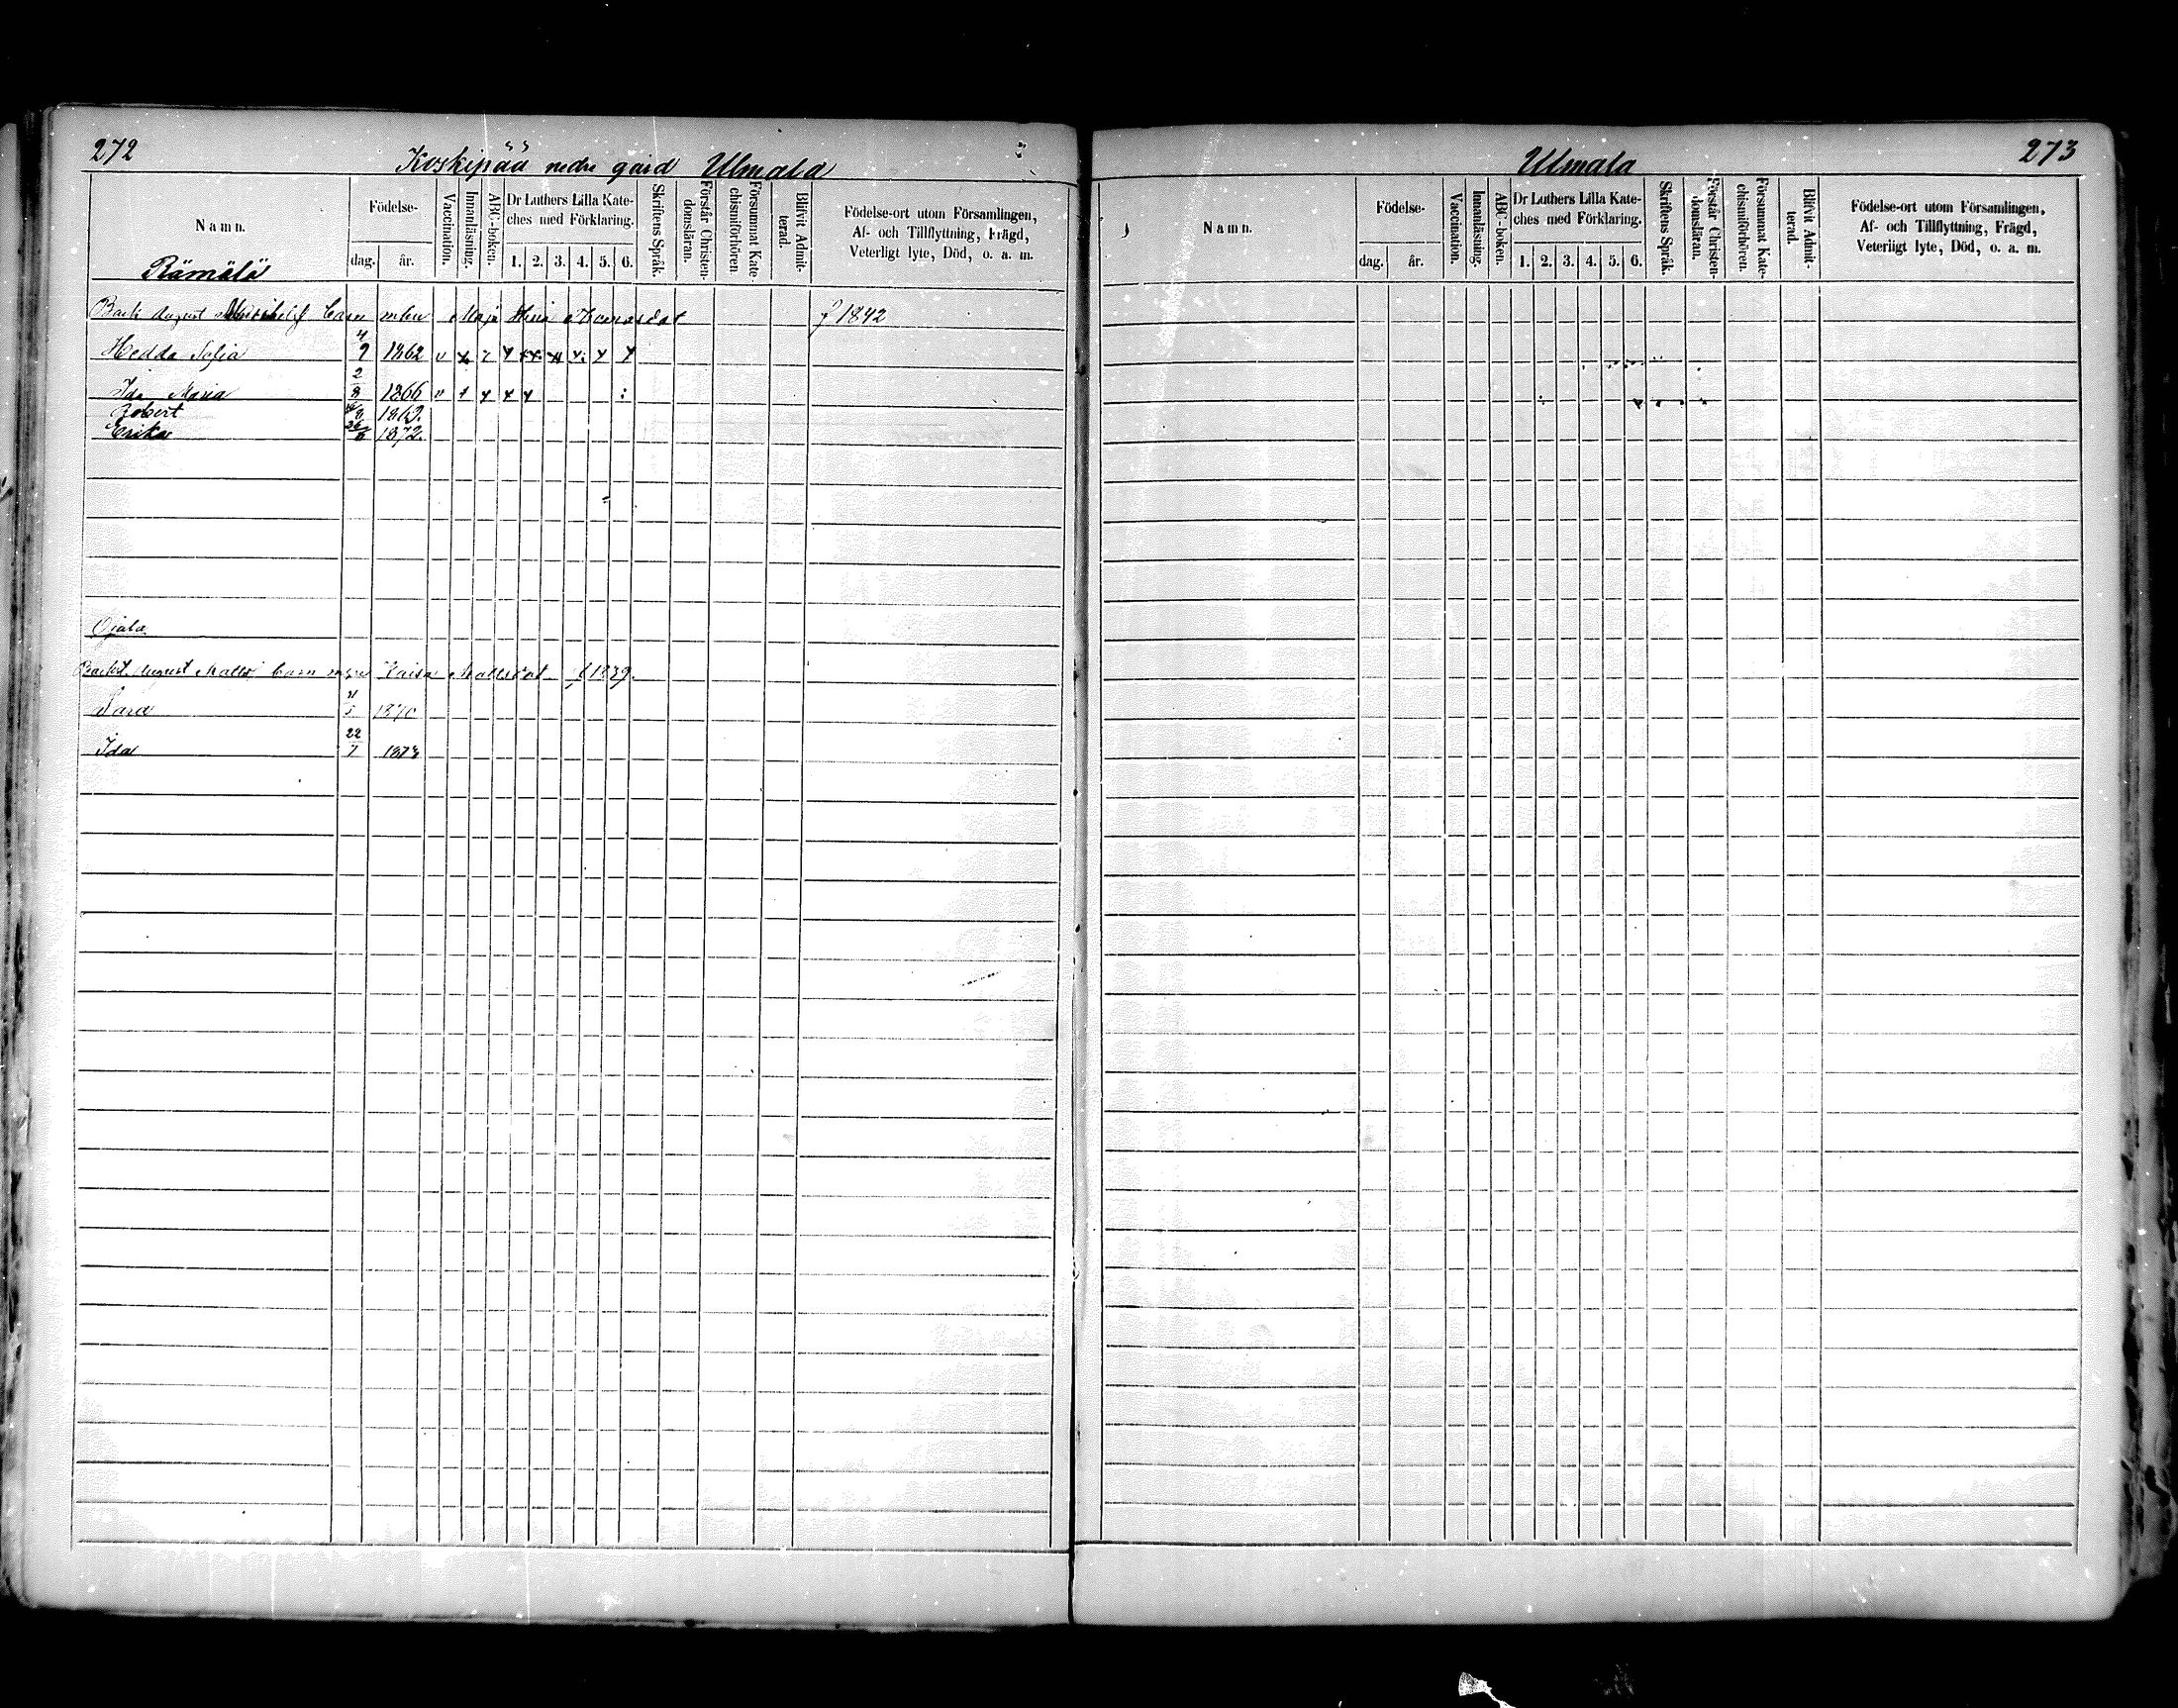 272
Koskipää nedre gård Ulmala
Namn.
Födelse-
dag.
år.
Vaccination.
Innanläsning.
ABC-boken.
Dr Luthers Lilla Kate-
ches med Förklaring.
1. 2. 3. 4. 5. 6.
Skriftens Språk.
Förstår Christen-
domsläran.
Försummat Kate-
chismiförhören.
Blifvit Admit-
terad.
Födelse-ort utom Församlingen,
Af- och Tillflyttning, Frägd,
Veterligt lyte, Död, o. a. m.
Rämälä
Back August barn Maja Thomasdot f 1842
Hedda Sofia 4/9 1862
Ida Maria 2/8 1866
Robert
Erika 1872.
Ojala
August Matts barn Kaisa Mattsdot f 1839.
Sara 1870
Ida 22/7 1873
Ulmala
273
Namn.
Födelse-
dag.
år.
Vaccination.
Innanläsning.
ABC-boken.
Dr Luthers Lilla Kate-
ches med Förklaring.
1. 2. 3. 4. 5. 6.
Skriftens Språk.
Förstår Christen-
domsläran.
Försummat Kate-
chismiförhören.
Blifvit Admit-
terad.
Födelse-ort utom Församlingen,
Af- och Tillflyttning, Frägd,
Veterligt lyte, Död, o. a. m.